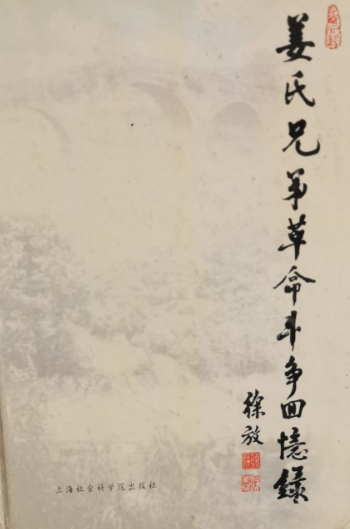 姜氏兄弟革命斗争回憶錄
徐放
上海社会科学院出版社